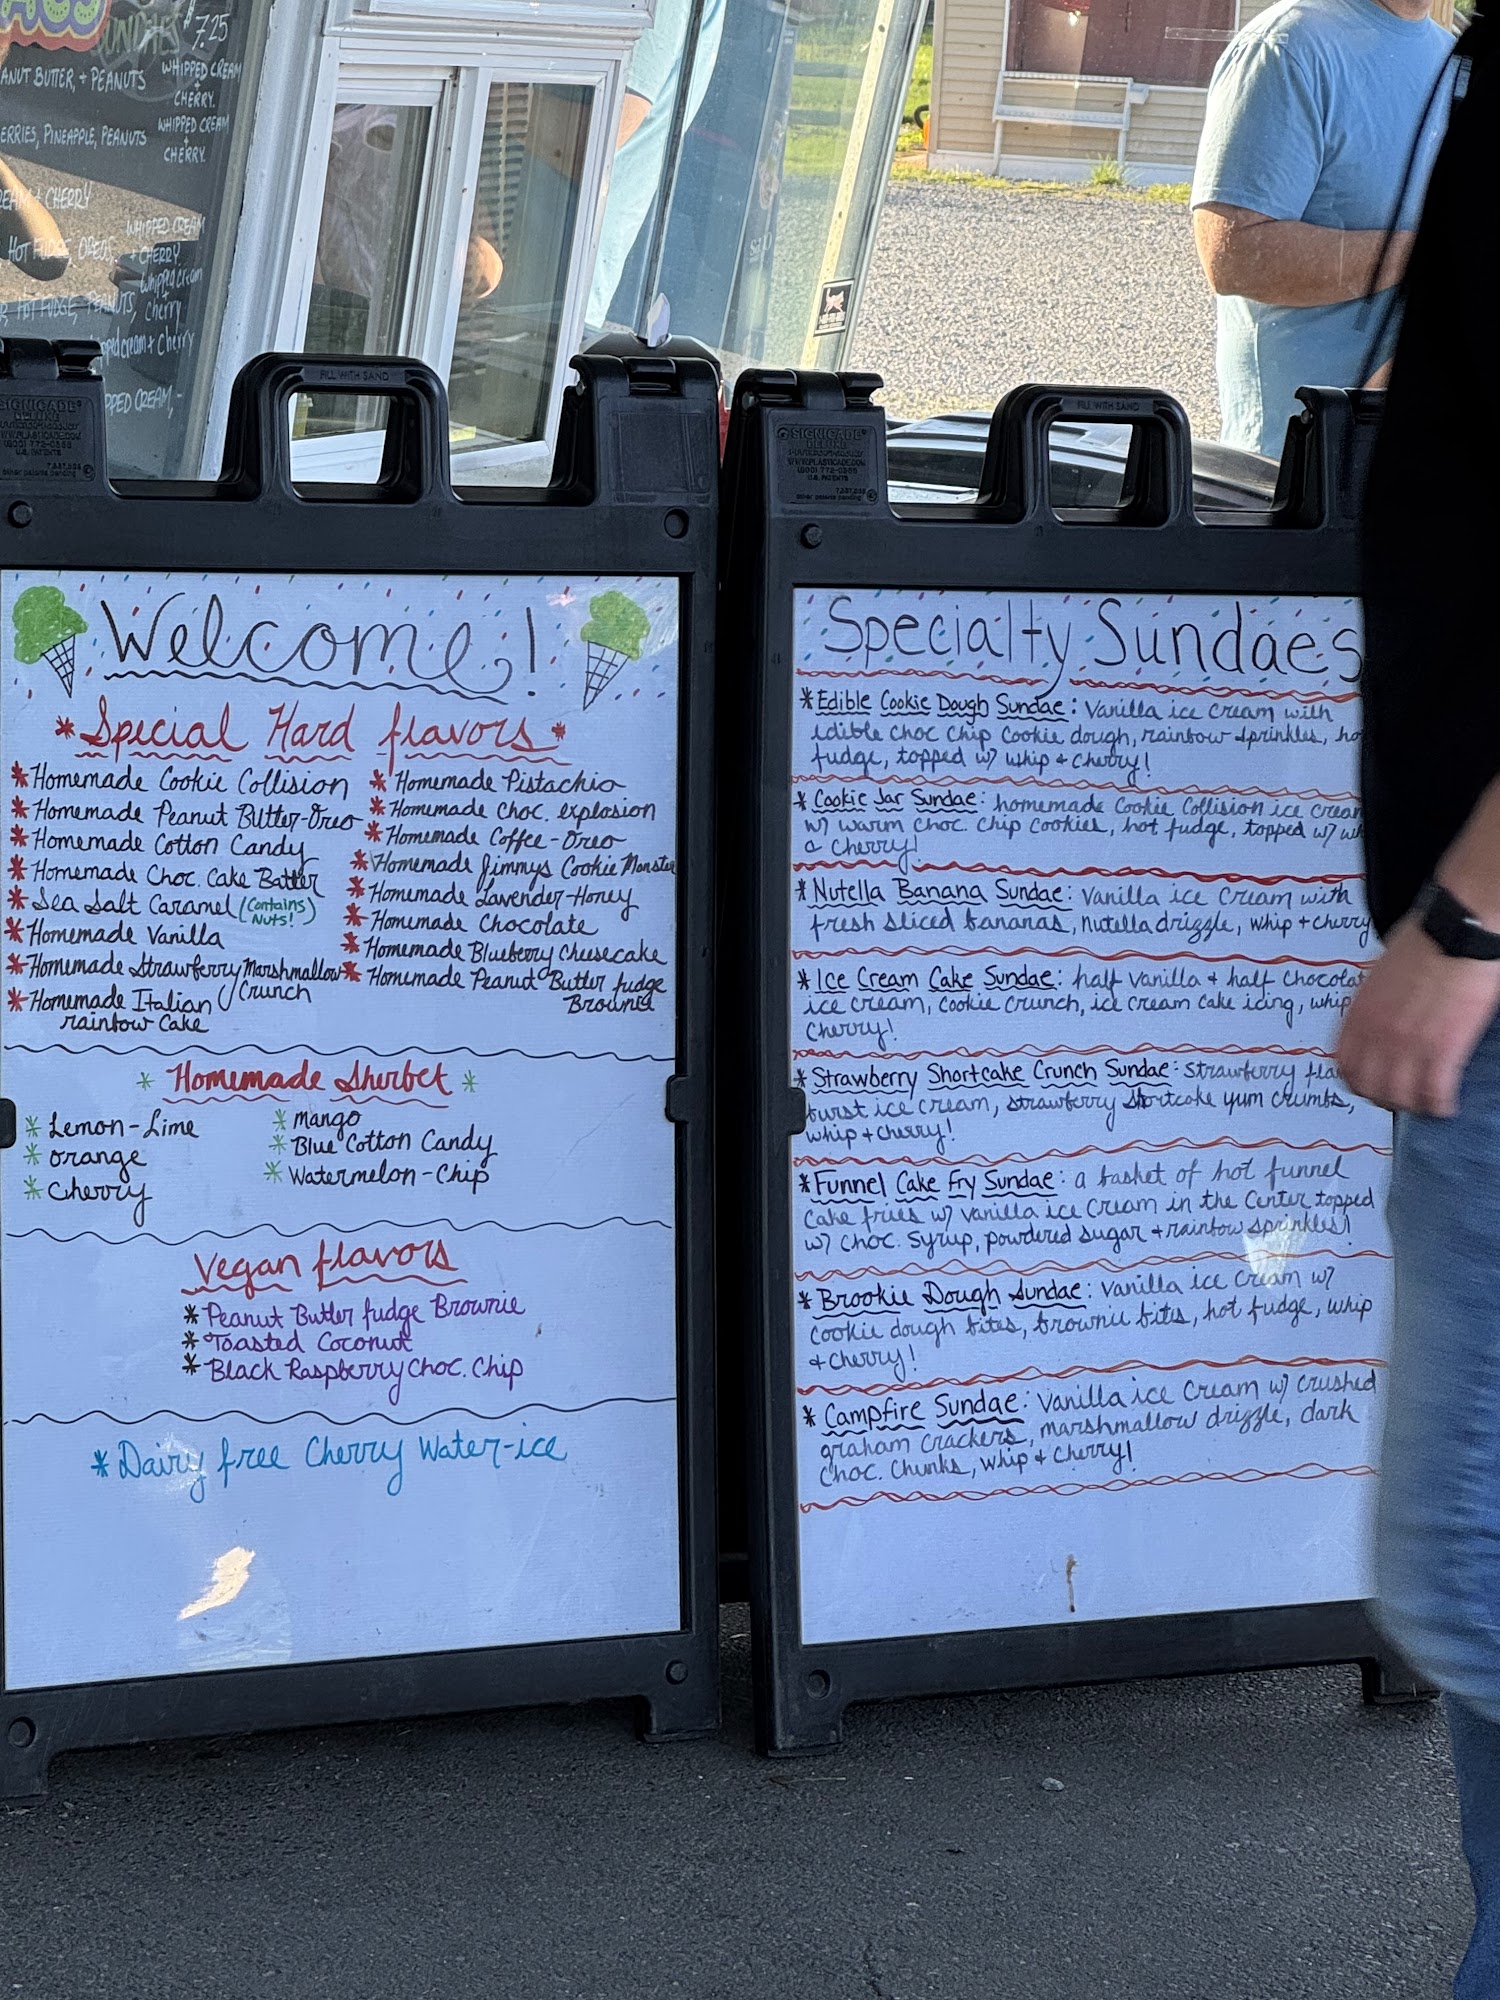 $7.25
PEANUT BUTTER, + PEANUTS WHIPPED CREAM
+ CHERRY.
PINEAPPLE, PEANUTS WHIPPED CREAM
+ CHERRY.
+ CHERRY
WHIPPED CREAM
HOT FUDGE, OREOS, + CHERRY
whipped cream
HOT FUDGE, PEANUTS, cherry
+ Cherry
CREAM,
FILL WITH SAND
SIGNICADE
DELUXE
Welcome!
*Special Hard flavors*
*Homemade Cookie Collision
*Homemade Peanut Butter-Oreo
*Homemade Cotton Candy
*Homemade Choc. Cake Batter
*Sea Salt Caramel (Contains Nuts!)
*Homemade Vanilla
*Homemade Strawberry Marshmallow
Crunch
*Homemade Italian
rainbow Cake
*Homemade Pistachio
*Homemade Choc. explosion
*Homemade Coffee-Oreo
*Homemade Jimmys Cookie Monster
*Homemade Lavender-Honey
*Homemade Chocolate
*Homemade Blueberry Cheesecake
*Homemade Peanut Butter fudge
Brownie
*Homemade Sherbet*
*Lemon-Lime
*orange
*Cherry
*mango
*Blue Cotton Candy
*Watermelon-Chip
Vegan flavors
*Peanut Butter fudge Brownie
*Toasted Coconut
*Black Raspberry Choc. Chip
*Dairy free Cherry Water-ice
FILL WITH SAND
SIGNICADE
DELUXE
Specialty Sundaes
*Edible Cookie Dough Sundae: Vanilla ice cream with
edible choc chip cookie dough, rainbow sprinkles, ho
fudge, topped w/ whip + cherry!
*Cookie Jar Sundae: homemade Cookie Collision ice cream
w/ warm choc. chip cookies, hot fudge, topped w/ wh
a cherry!
*Nutella Banana Sundae: Vanilla ice cream with
fresh sliced bananas, nutella drizzle, whip + cherry
*Ice Cream Cake Sundae: half vanilla + half chocolat
ice cream, cookie crunch, ice cream cake icing, whip
cherry!
*Strawberry Shortcake Crunch Sundae: strawberry fla
burst ice cream, strawberry shortcake yum crumbs,
whip + cherry!
*Funnel Cake Fry Sundae: a basket of hot funnel
cake fries w/ vanilla ice cream in the center topped
w/ choc. syrup, powdered sugar + rainbow sprinkles!
*Brookie Dough Sundae: Vanilla ice cream w/
cookie dough bites, brownie bits, hot fudge, whip
+ cherry!
*Campfire Sundae: Vanilla ice cream w/ crushed
graham crackers, marshmallow drizzle, dark
choc. chunks, whip + cherry!